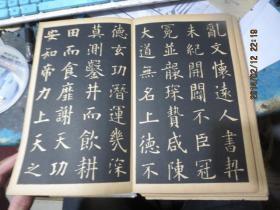 亂文懷遠人書契
未紀開闢不臣冠
冕並襲琛贄咸陳
大道無名上德不
德玄功潛運幾深
莫測鑿井而飲耕
田而食靡謝天功
安知帝力上天之
22:19